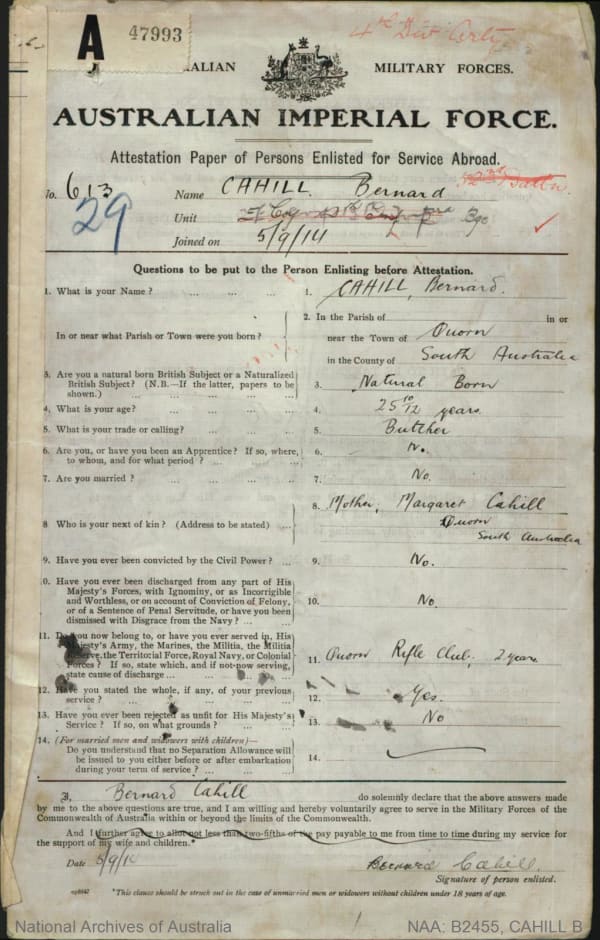 A
47993
4th Div Arty
ALIAN MILITARY FORCES.
AUSTRALIAN IMPERIAL FORCE.
Attestation Paper of Persons Enlisted for Service Abroad.
No. 613 Name CAHILL Bernard
29
Unit
Joined on 5/9/14
Questions to be put to the Person Enlisting before Attestation.
1. What is your Name? ... ... ... 1. CAHILL, Bernard.
2. In the Parish of in or
In or near what Parish or Town were you born? near the Town of Quorn
in the County of South Australia
3. Are you a natural born British Subject or a Naturalized
British Subject? (N.B.—If the latter, papers to be
shown.) ... ... ... 3. Natural Born
4. What is your age? ... ... ... 4. 25 10/12 years
5. What is your trade or calling? ... ... 5. Butcher
6. Are you, or have you been an Apprentice? If so, where,
to whom, and for what period? ... ... 6. No.
7. Are you married? ... ... ... 7. No.
8 Who is your next of kin? (Address to be stated) ... 8. Mother, Margaret Cahill
Quorn
South Australia
9. Have you ever been convicted by the Civil Power? ... 9. No.
0. Have you ever been discharged from any part of His
Majesty's Forces, with Ignominy, or as Incorrigible
and Worthless, or on account of Conviction of Felony,
or of a Sentence of Penal Servitude, or have you been
dismissed with Disgrace from the Navy? ... ... 10. No
11. Do you now belong to, or have you ever served in, His
Majesty's Army, the Marines, the Militia, the Militia
Reserve, the Territorial Force, Royal Navy, or Colonial
Forces? If so, state which, and if not now serving,
state cause of discharge ... 11 Quorn Rifle Club, 2 years
12. Have you stated the whole, if any, of your previous
service? ... ... ... 12. Yes.
13. Have you ever been rejected as unfit for His Majesty's
Service? If so, on what grounds? ... ... 13. No
14. (For married men and widowers with children)—
Do you understand that no Separation Allowance will
be issued to you either before or after embarkation
during your term of service? ... ... 14.
I, Bernard Cahill do solemnly declare that the above answers made
by me to the above questions are true, and I am willing and hereby voluntarily agree to serve in the Military Forces of the
Commonwealth of Australia within or beyond the limits of the Commonwealth.
And I further agree to allot not less than two-fifths of the pay payable to me from time to time during my service for
the support of my wife and children.*
Date 5/9/14 Bernard Cahill
Signature of person enlisted.
*This clause should be struck out in the case of unmarried men or widowers without children under 18 years of age.
National Archives of Australia NAA: B2455, CAHILL B